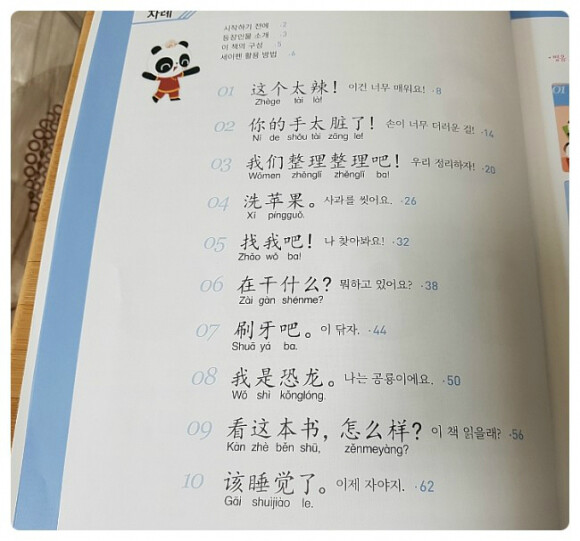 차례
시작하기 전에 ·2
등장인물 소개 ·3
이 책의 구성 5
세이펜 활용 방법 ·6
01 这个太辣! 이건 너무 매워요! ·8
Zhège tài là!
02 你的手太脏了! 손이 너무 더러운 걸! ·14
Nǐ de shǒu tài zāng le!
03 我们整理整理吧! 우리 정리하자! ·20
Wǒmen zhěnglǐ zhěnglǐ ba!
04 洗苹果。 사과를 씻어요. ·26
Xǐ píngguǒ.
05 找我吧! 나 찾아봐요! ·32
Zhǎo wǒ ba!
06 在干什么? 뭐하고 있어요? ·38
Zài gàn shénme?
07 刷牙吧。 이 닦자. ·44
Shuā yá ba.
08 我是恐龙。 나는 공룡이에요. ·50
Wǒ shì kǒnglóng.
09 看这本书, 怎么样? 이 책 읽을래? ·56
Kàn zhè běn shū, zěnmeyàng?
10 该睡觉了。 이제 자야지. ·62
Gāi shuìjiào le.
01